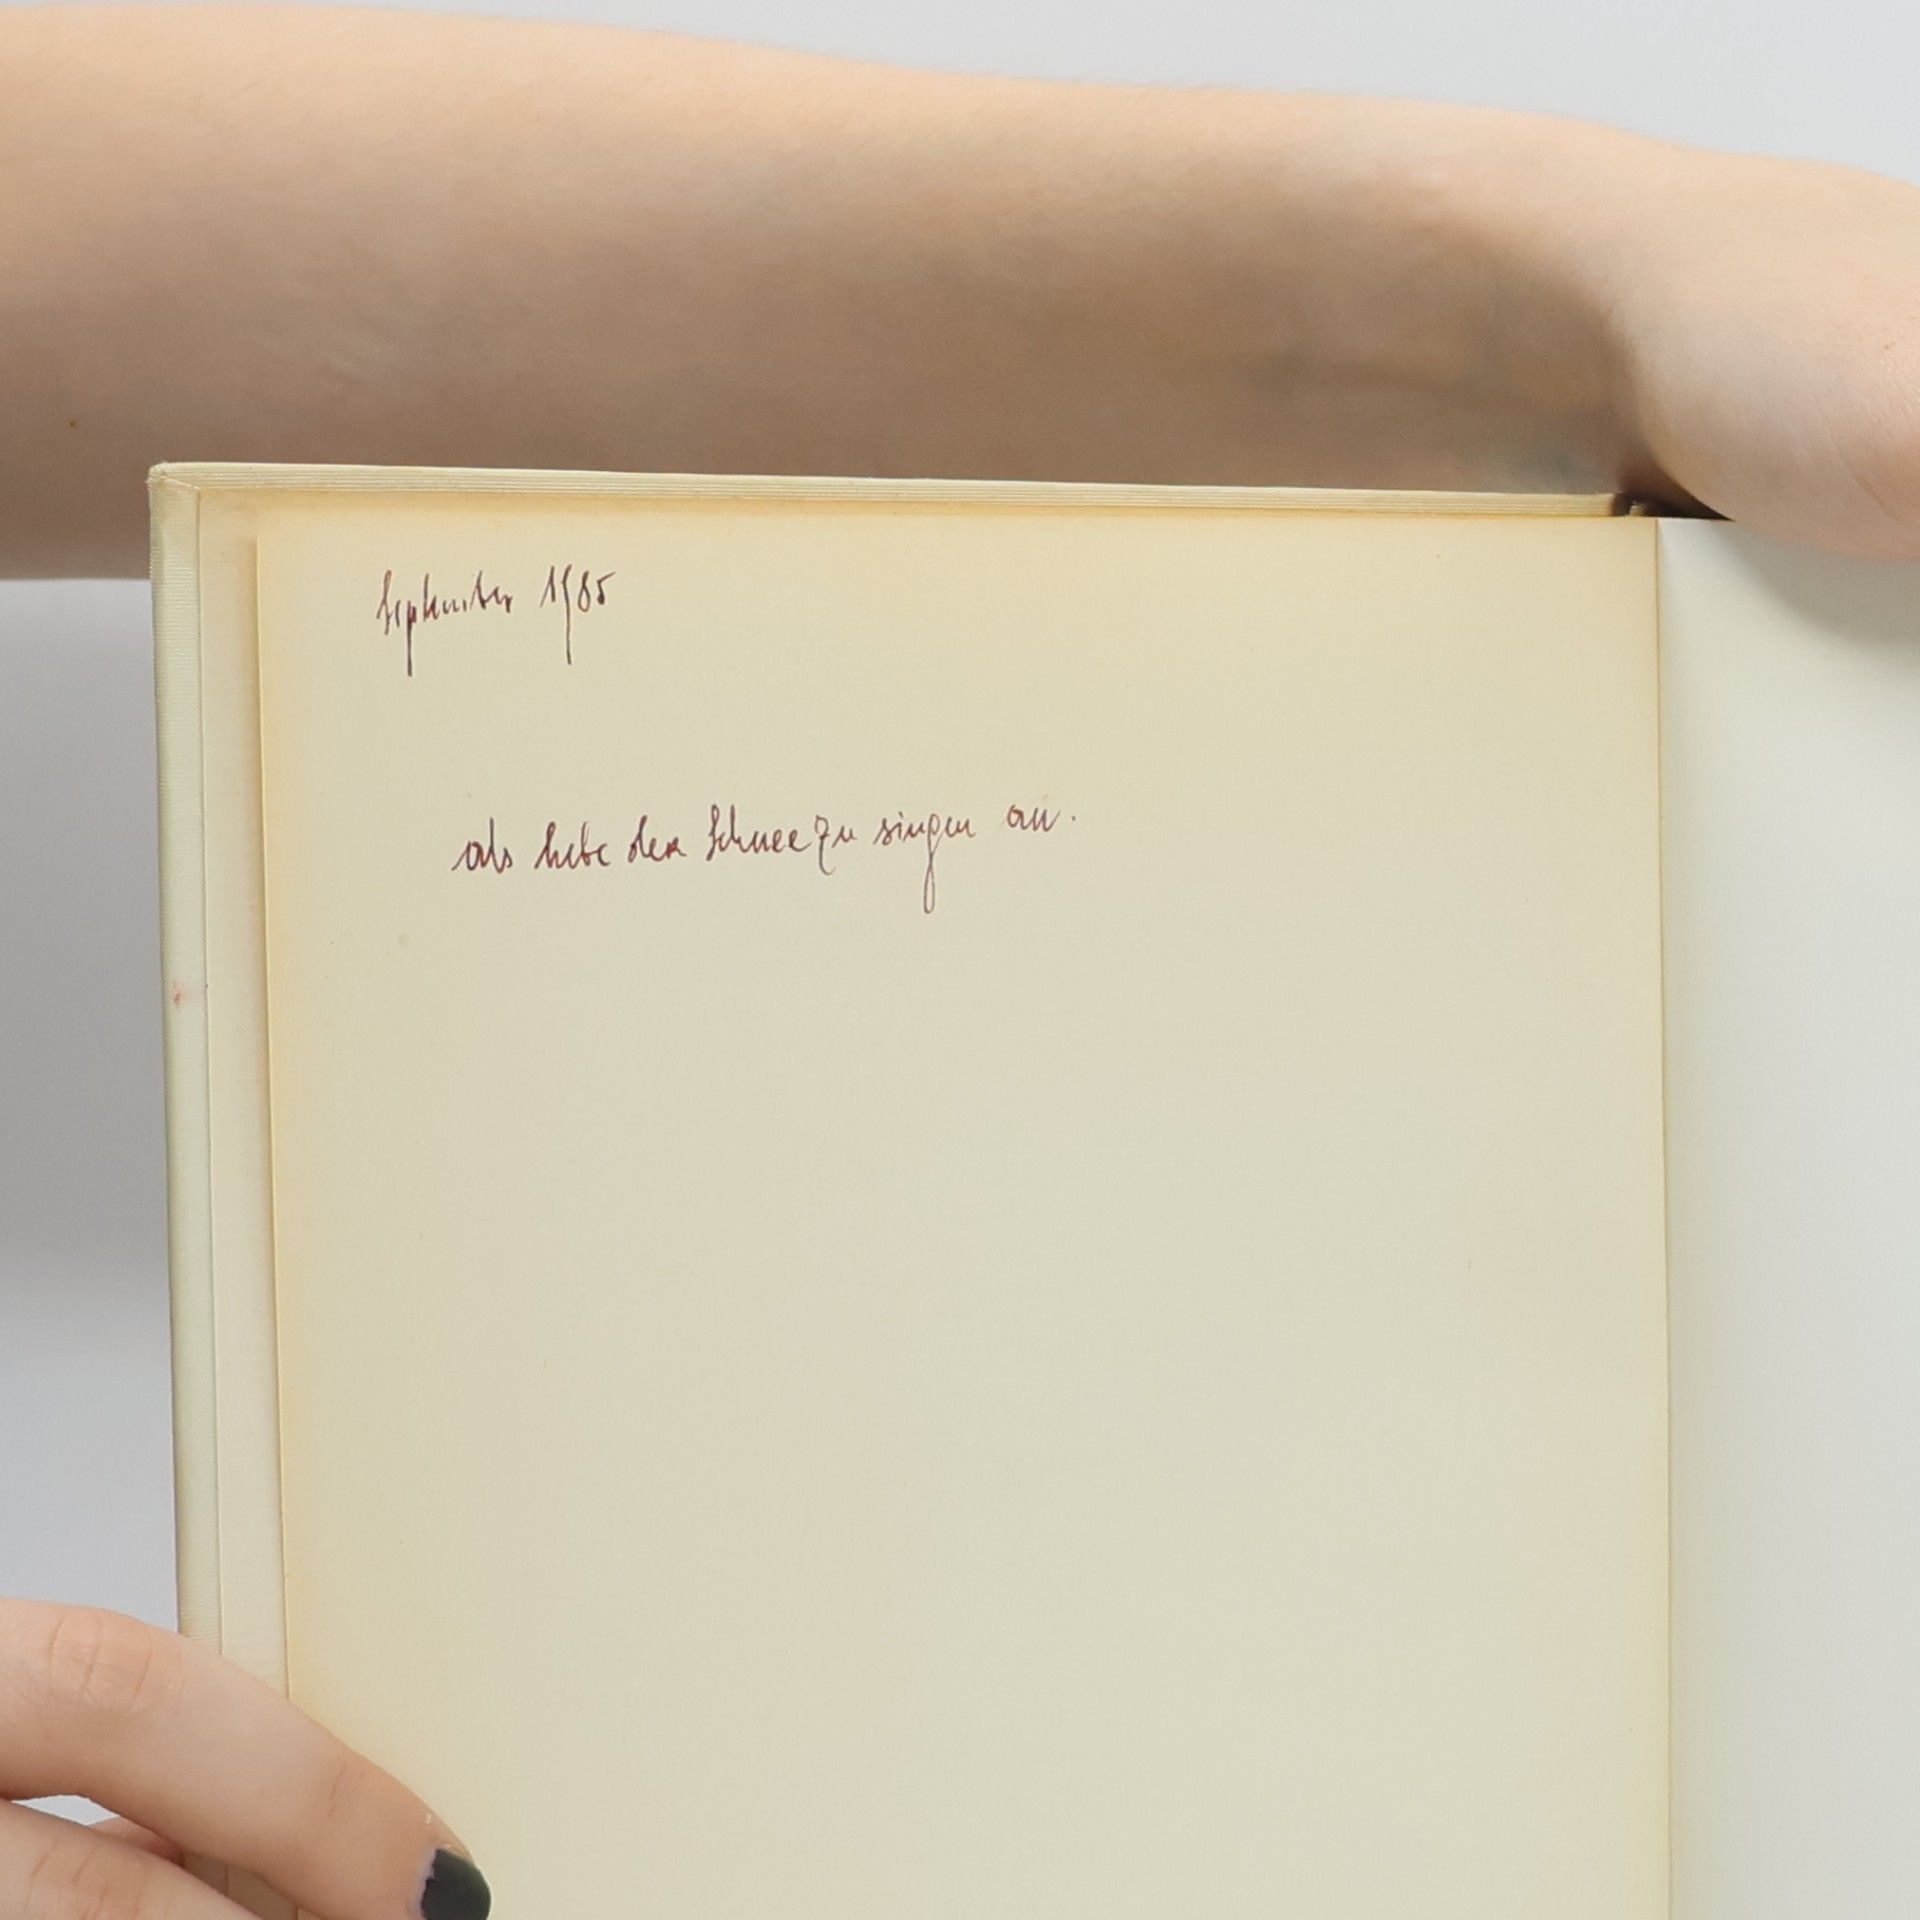 September 1985
als hebe der Schnee zu singen an.